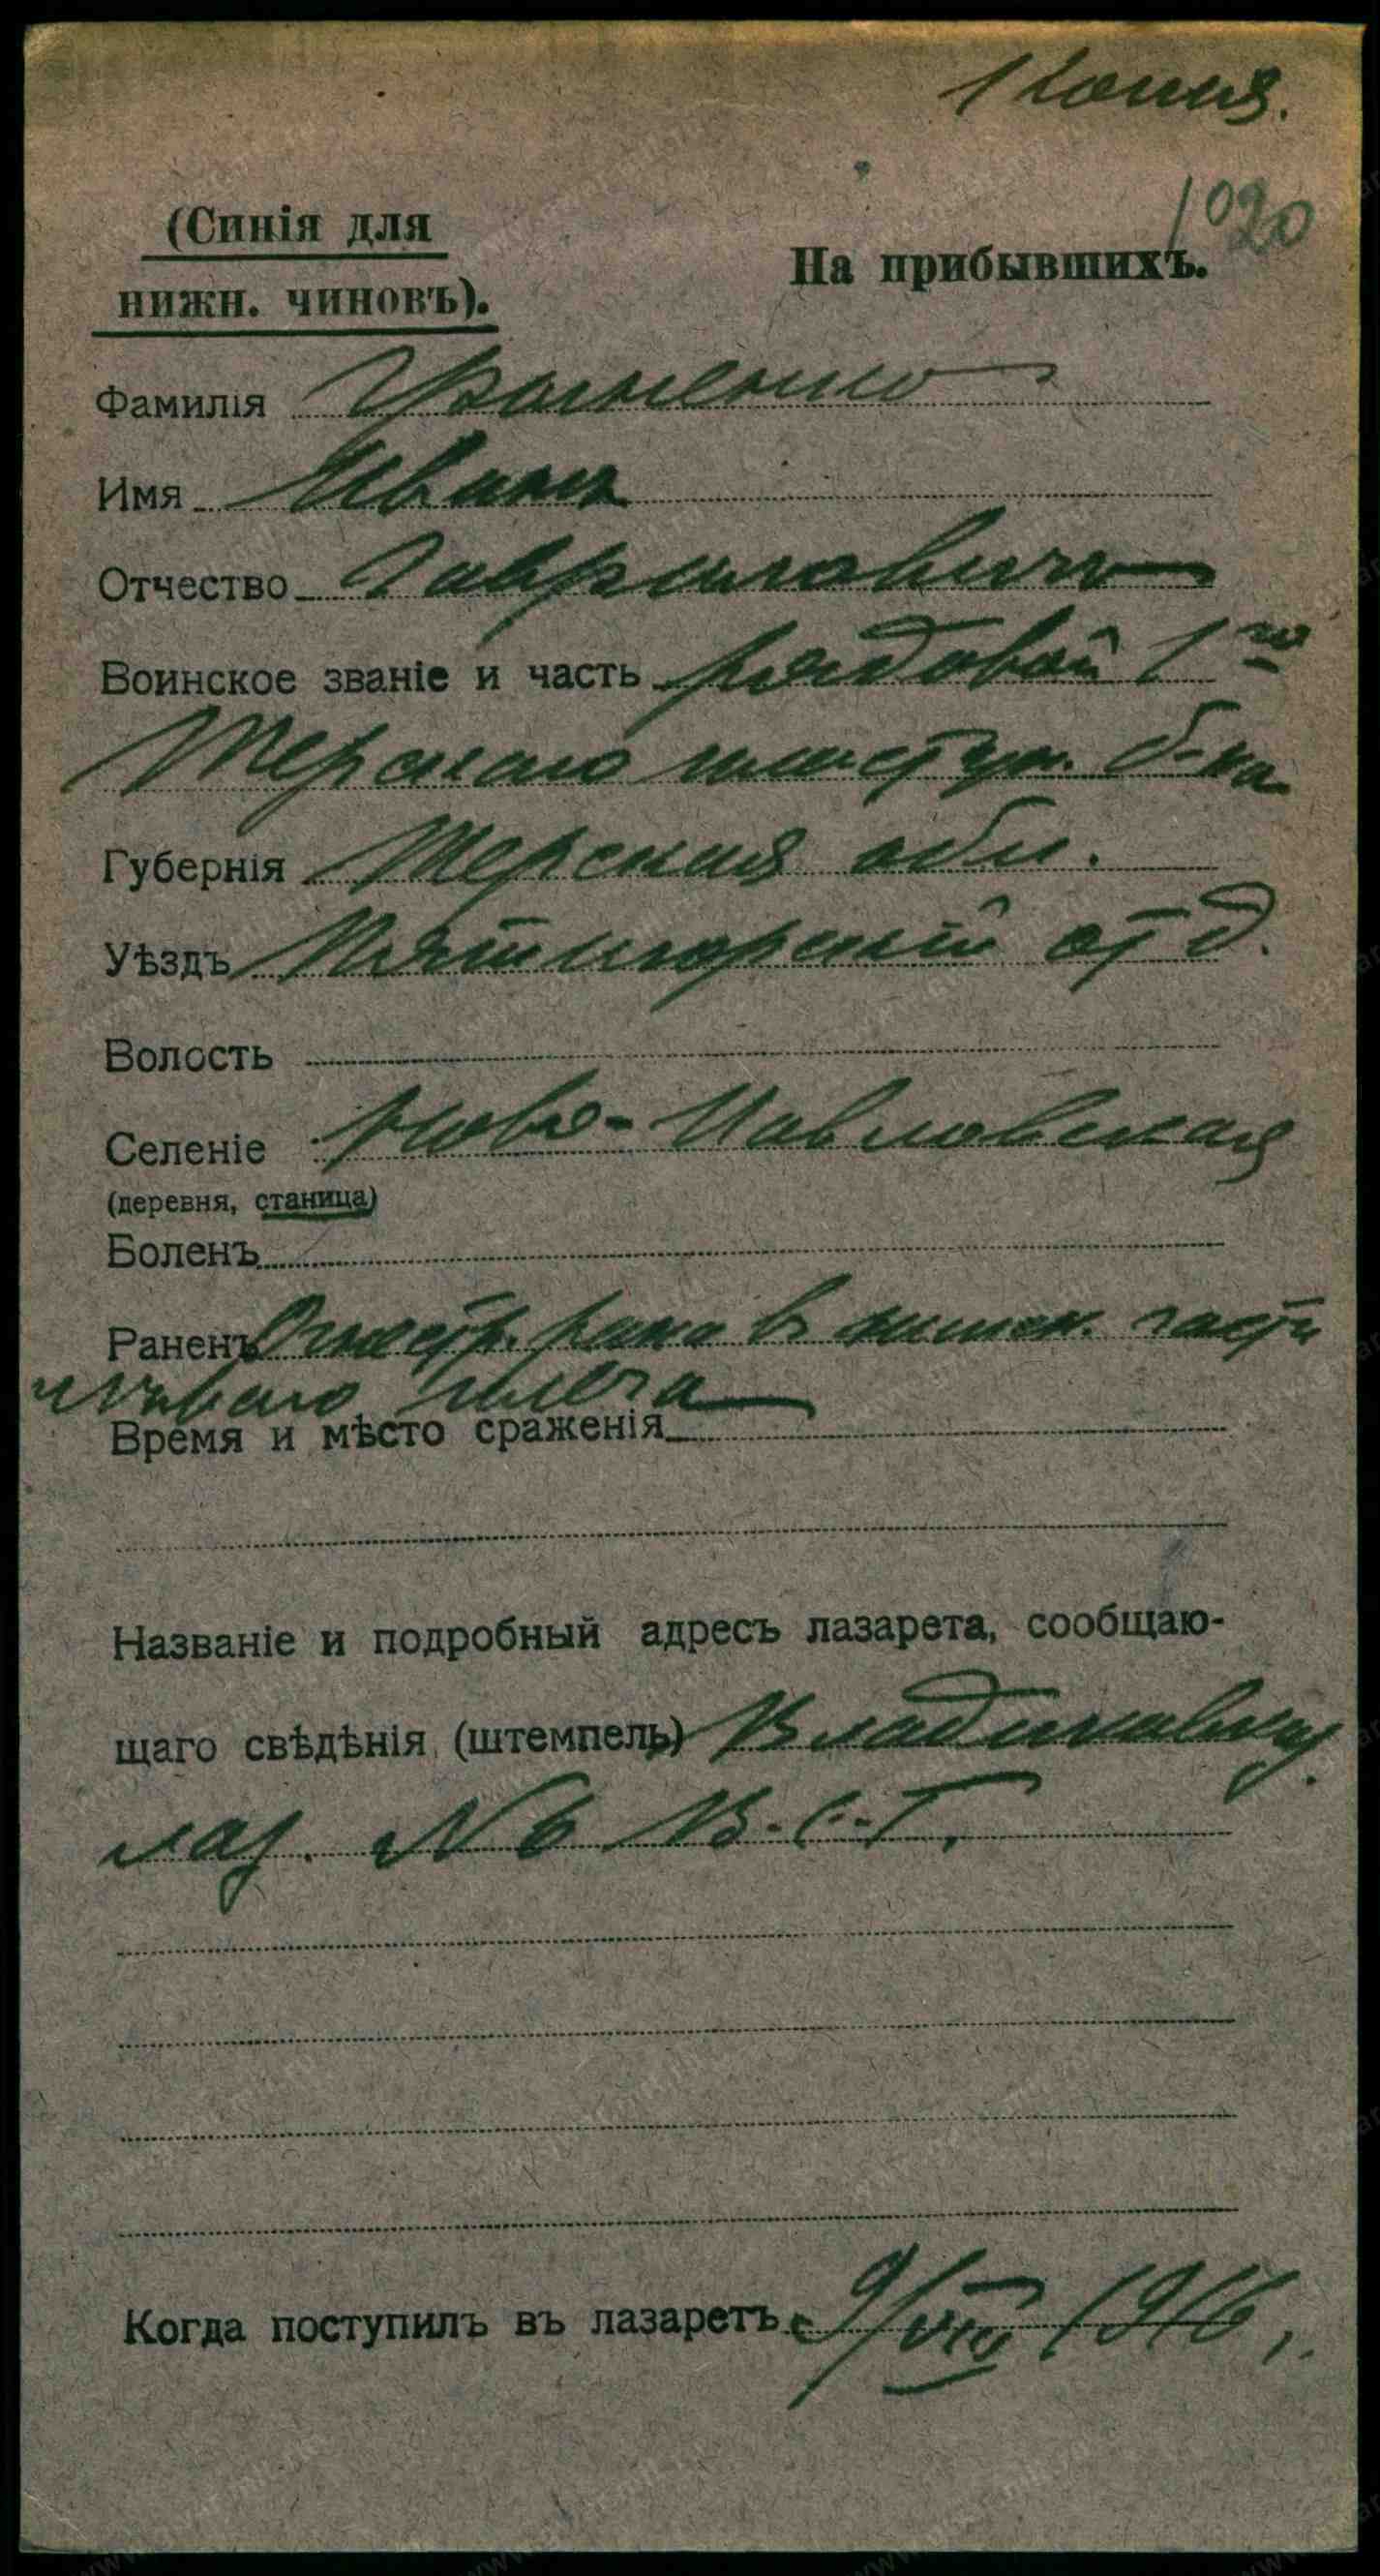 1 Копия.
1020
(Синія для
нижн. чиновъ).
На прибывшихъ.
Фамилія
Имя Иванъ
Отчество Гавриловичъ
Воинское званіе и часть рядовой 1го
Терскаго пластун. б-на
Губернія Терская обл.
Уѣздъ Пятигорскій отд.
Волость
Селеніе Ново-Павловская
(деревня, станица)
Боленъ
Раненъ Огнестр. рана в нижн. части
лѣваго плеча
Время и мѣсто сраженія
Названіе и подробный адресъ лазарета, сообщаю-
щаго свѣдѣнія (штемпель) Владикавказ.
лаз. № 6 В.С.Г.
Когда поступилъ въ лазаретъ 9/VIII 1916 г.